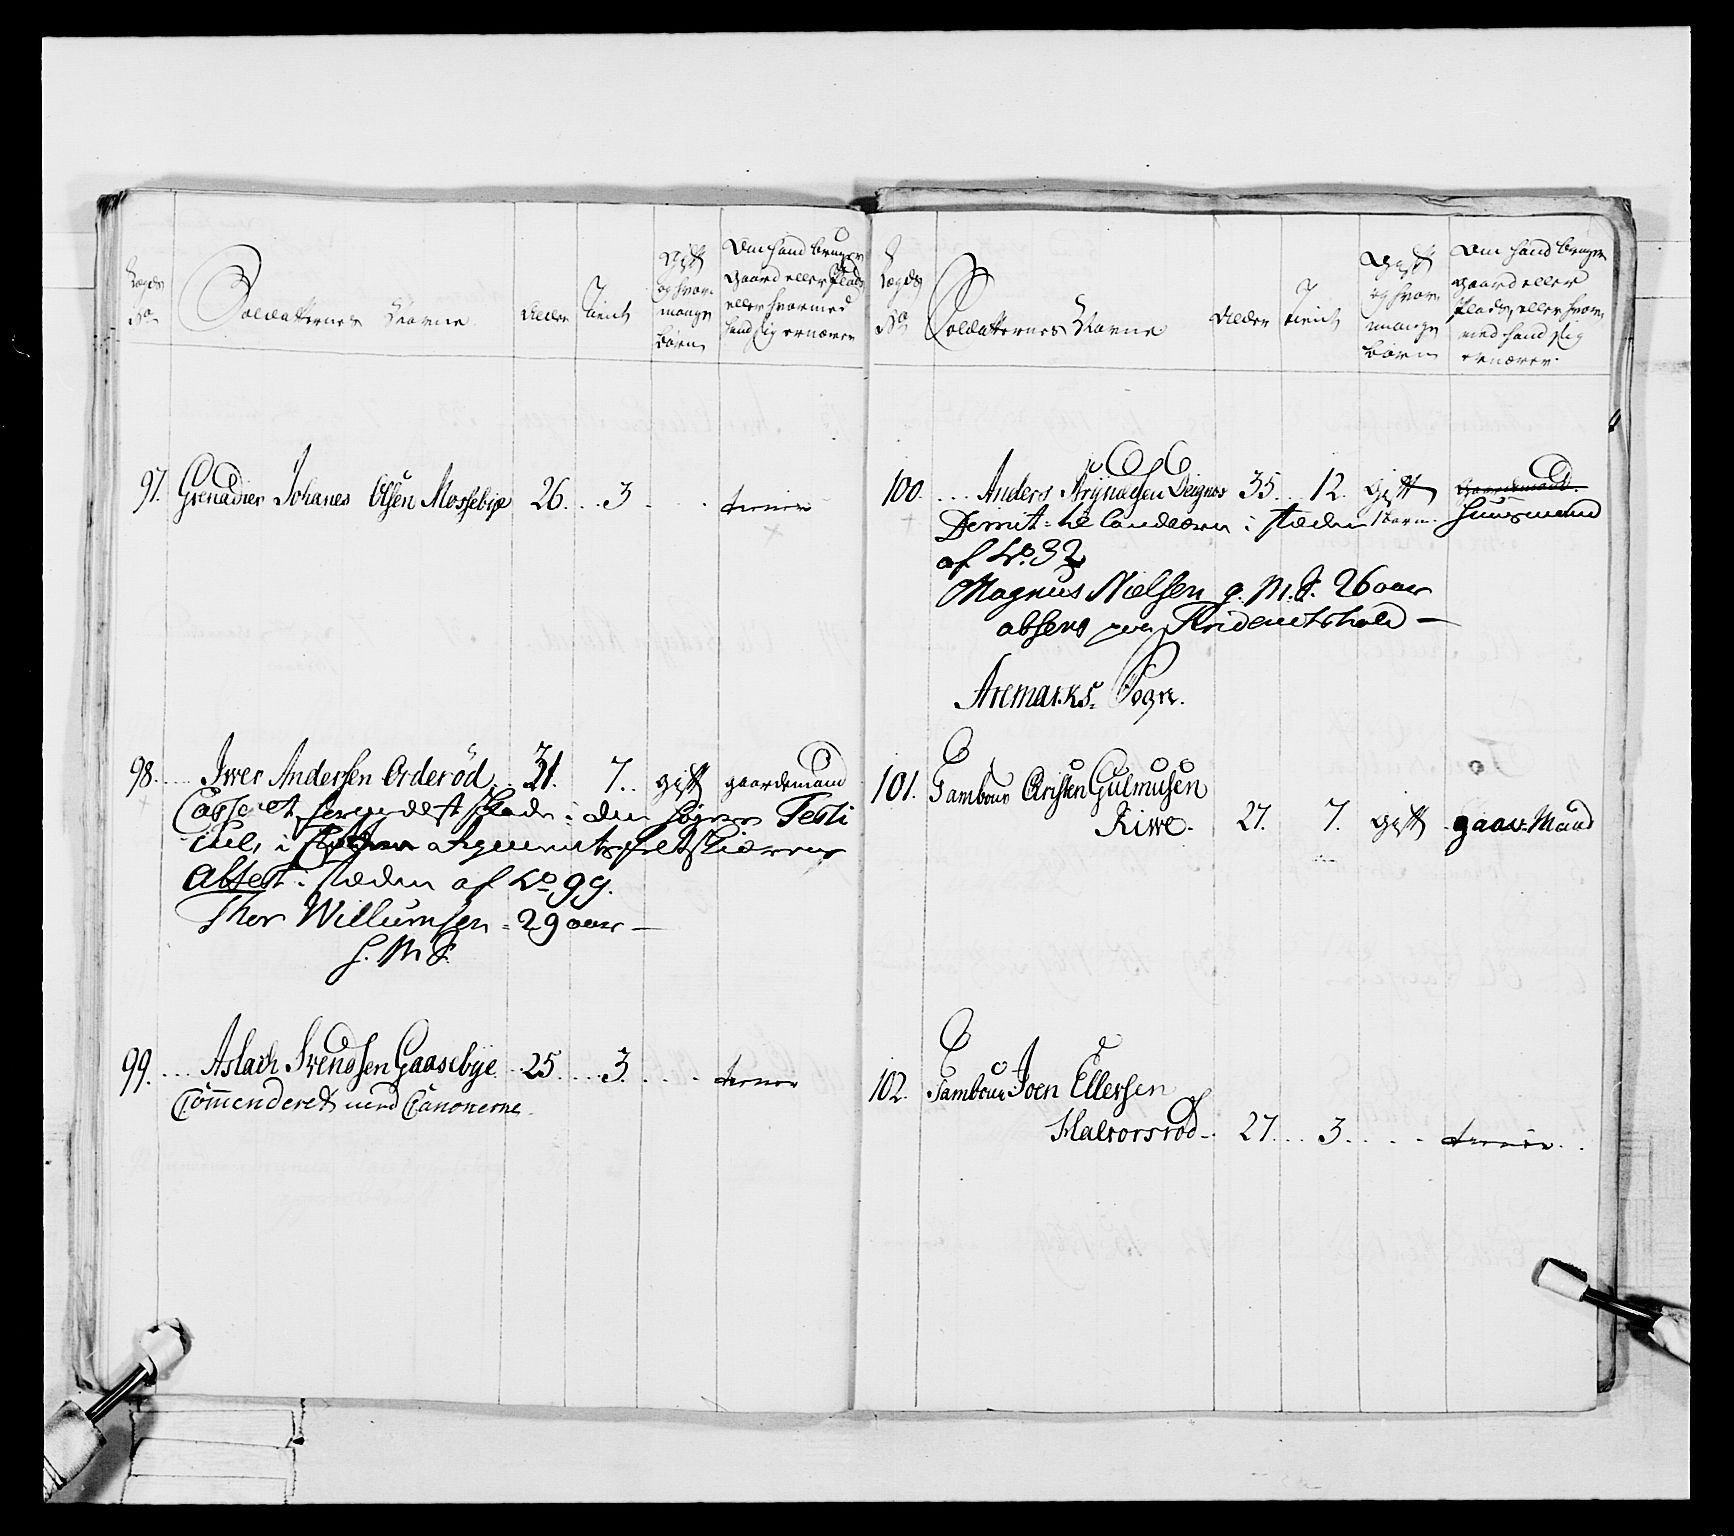 Lægds
No
Soldatternes Navne
Alder
Tient
Gift
og hvor
mange
Børn
Om hand bruger
gaard eller Plads
eller hvormed
hand sig ernærer
97. Grenadier Johanes Olsen Mossebye 26. 3 tiener
98. Iwer Andersen Orderød 31. 7. gift gaardemand
Casseret formedelst Skade i den høyre Testi
cul, i
attest. i stæden af No 99.
Thor Willumsen 29 aar
G. M. S.
99. Aslach Svendsen Gaasebye 25. 3. tiener
Commenderet ved Canonerne.
Lægds
No
Soldatternes Navne
Alder
Tient
Gift
og hvor
mange
Børn
Om hand bruger
gaard eller
Plads, eller hvor
med hand sig
ernærer.
100. Anders Arnesen 35. 12. gift gaardemand.
Demit. til landværn i stæden 1 barn. huusmand
af No. 32
Magnus Nielsen g. M. S. 26 aar
absens paa
Aremarks Sogn.
101. Tambour Cristen Gulmusen
Kirve. 27. 7. gift gaard Mand
102. Tambour Joen Ellersen
Halvorsrød 27. 3. tiener